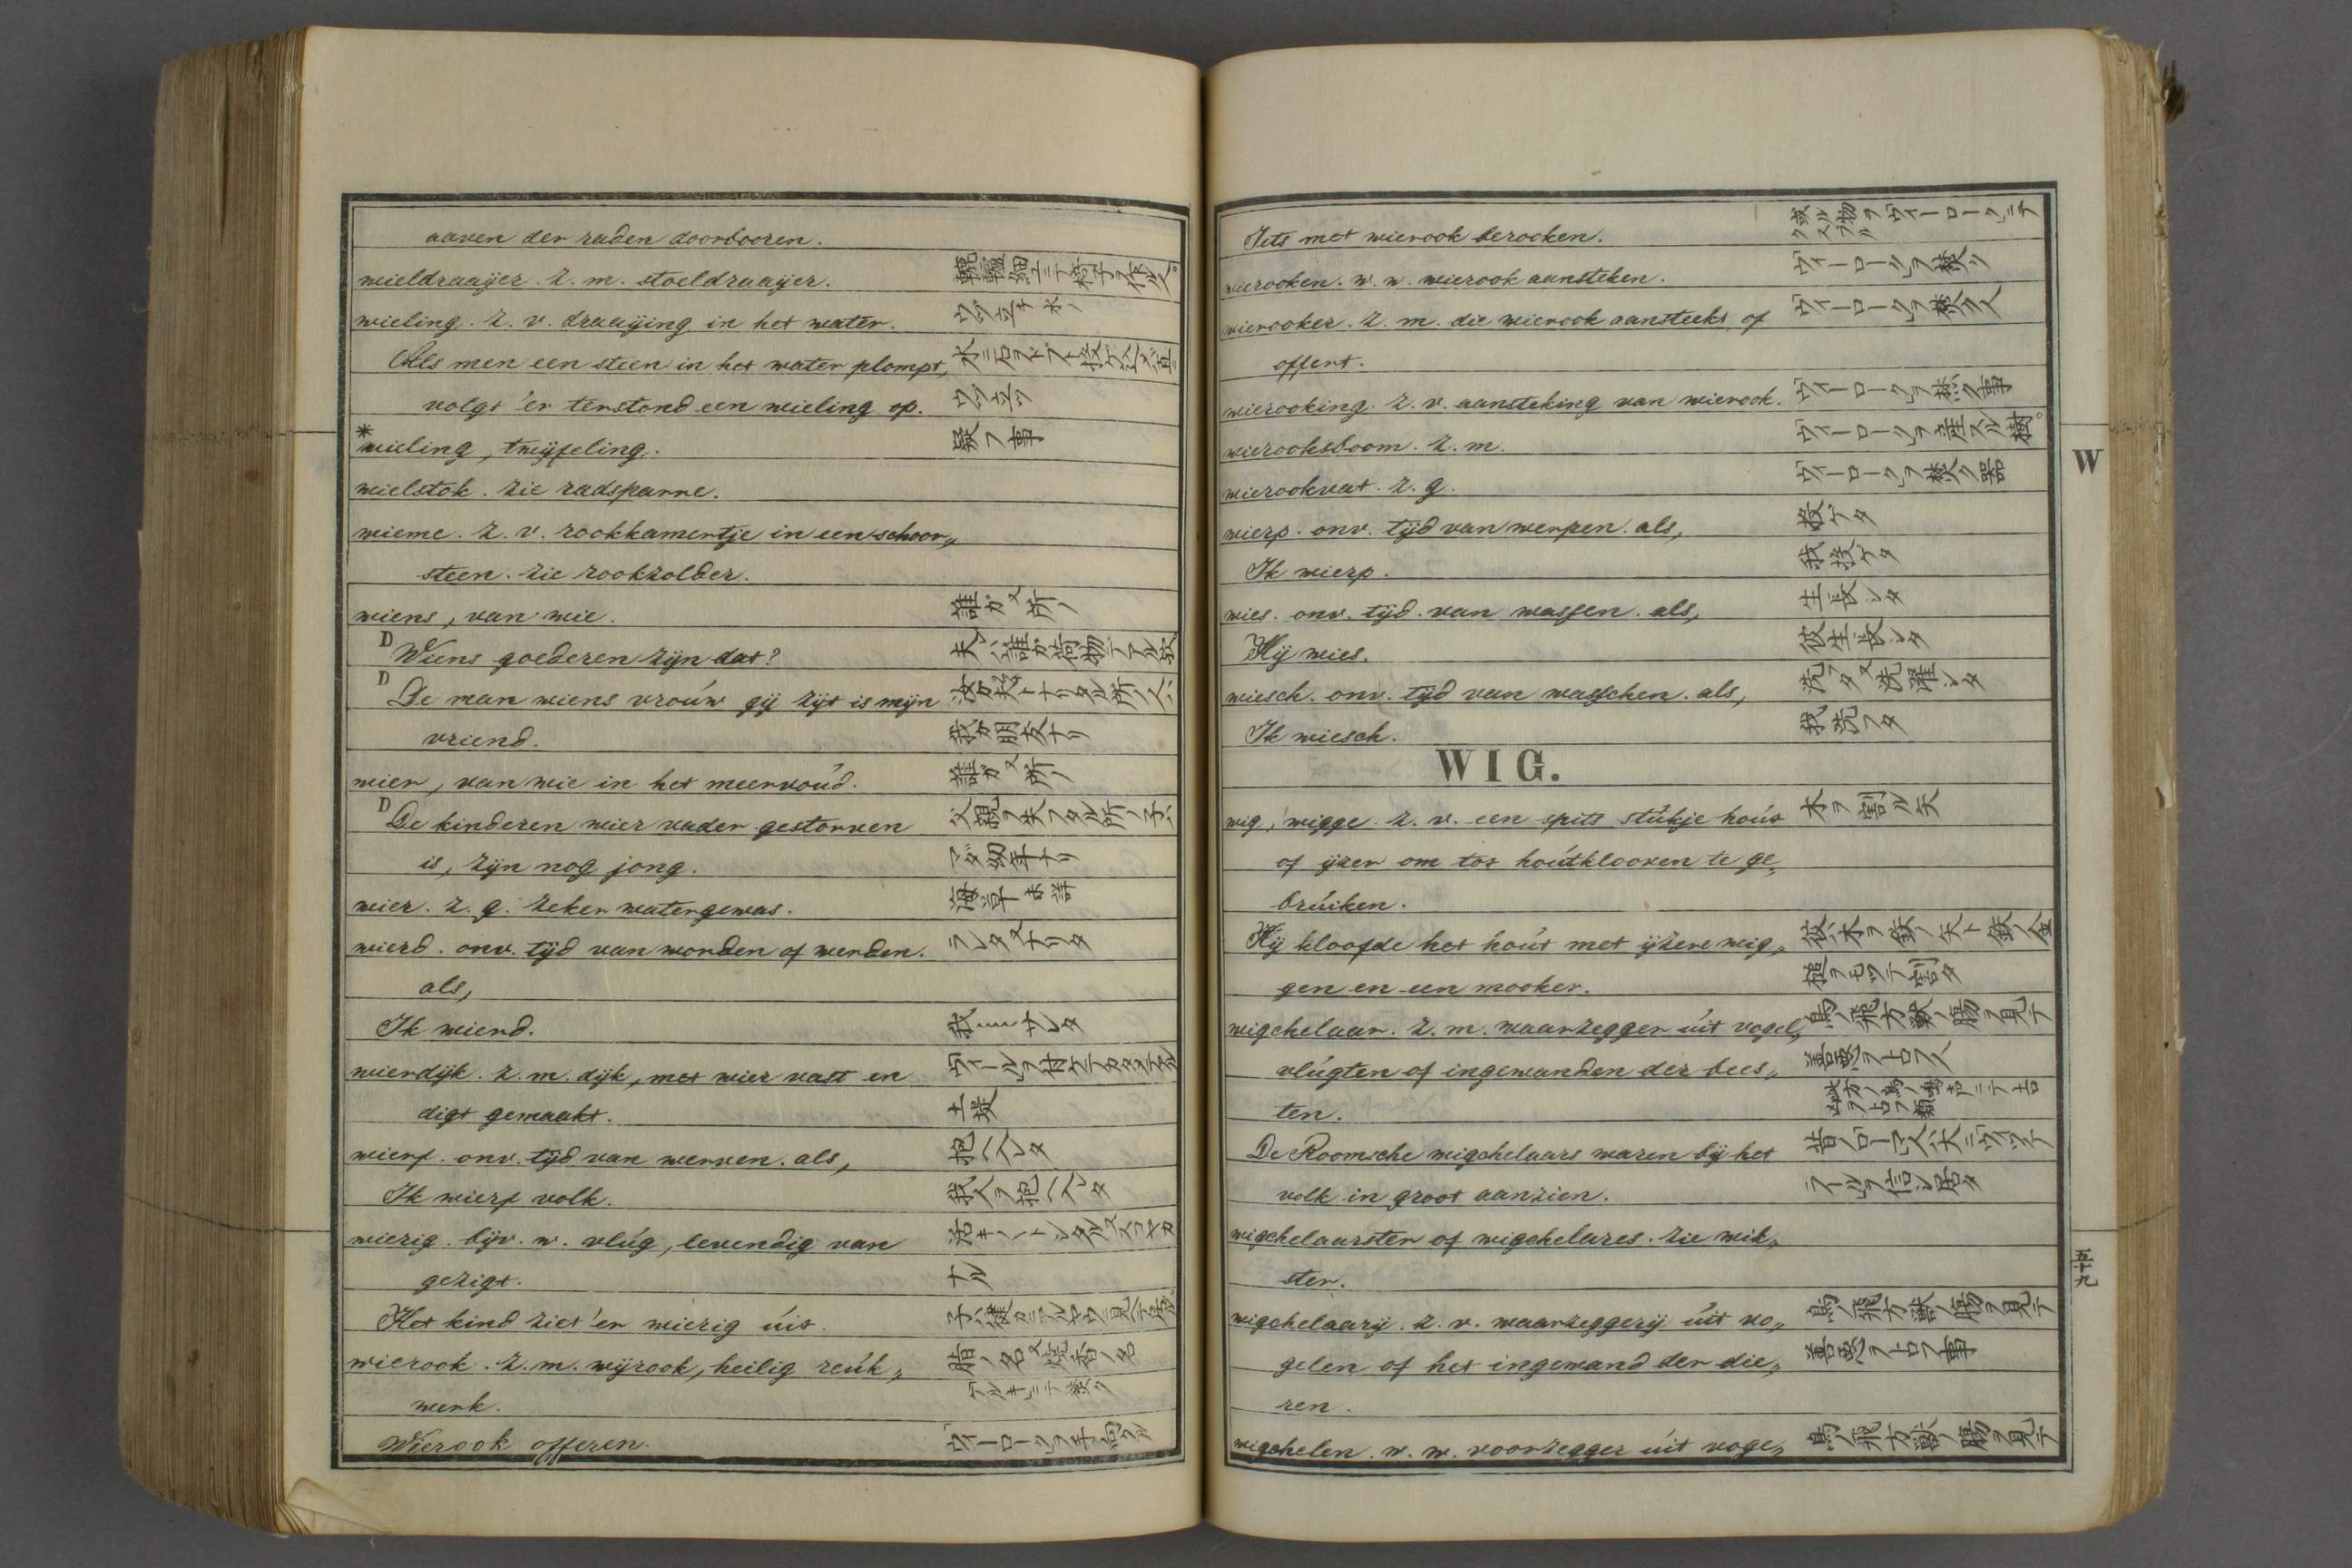 aaven der raden doorbooren.
wieldraaijer. z. m. stoeldraaijer.
wieling. z. v. draaijing in het water. ウヅ立チ水ノ
Als men een steen in het water plompt,
volgt 'er terstond een wieling op. ウヅ立ツ
*wieling, twijfeling. 疑フ事
wielstok. zie radsparre.
wieme. z. v. rookkamertje in een schoor„
steen. zie rookzolder.
wiens, van wie. 誰ガ又所ノ
D Wiens goederen zijn dat? 夫ハ誰ガ荷物デアル歟
D De man wiens vroúw gij zijt is mijn
vriend. 我ガ朋友ナリ
wier, van wie in het meervoúd. 誰ガ又所ノ
D De kinderen wier vader gestorven 父親ヲ失フタル所ノ子ハ
is, zijn nog jong. マダ幼年ナリ
wier. z. g. zeker watergewas. 海草未詳
wierd. onv. tijd van worden of werden. ラレタ又ナリタ
als,
Ik wierd. 我……ナレタ
wierdijk. z. m. dijk, met wier vast en
digt gemaakt. 土堤
wierf. onv. tijd van werven. als, 抱ヘ入レタ
Ik wierf volk. 我人ヲ抱ヘ入レタ
wierig. bijv. w. vlúg, levendig van
gezigt. ナル
Het kind ziet 'er wierig úit.
wierook. z. m. wijrook, heilig reúk„ 脂ノ名又焼香ノ名
werk.
Wierook offeren.
Iets met wierook berooken. 或ル物ヲ「ウィーローク」ニテ
クスブル
wierooken. w. w. wierook aansteken. 「ウィーローク」ヲ焚ク
wierooker. z. m. die wierook aansteekt of 「ウィーローク」ヲ焚ク人
offert.
wierooking. z. v. aansteking van wierook. 「ウィーローク」ヲ焚ク事
wierooksboom. z. m. 「ウィーローク」ヲ産スル樹。
wierookvat. z. g. 「ウィーローク」ヲ焚ク器
wierp. onv. tijd van werpen. als, 投ゲタ
Ik wierp. 我投ケタ
wies. onv. tijd. van wassen. als, 生長シタ
Hij wies. 彼生長シタ
wiesch. onv. tijd van wasschen. als, 洗フタ又洗濯シタ
Ik wiesch. 我洗フタ
WIG.
wig, wigge. z. v. een spits stúkje hoút 木ヲ割ル矢
of ijzer om tot hoútklooven te ge„
brúiken.
Hij kloofde het hoút met ijzere wig„ 彼ハ木ヲ鉄ノ矢ト鉄ノ金
gen en een mooker. 槌ヲモツテ割タ
wigchelaar. z. m. waarzegger úit vogel„ 鳥ノ飛方獣ノ腸ヲ見テ
vlúgten of ingewanden der bees„ 善悪ヲ占フ人
ten.
De Roomsche wigchelaars waren bij het
volk in groot aanzien.
wigchelaarster of wigchelares. zie wik„
ster.
wigchelaarij. z. v. waarzeggerij úit vo„ 鳥ノ飛方獣ノ腸ヲ見テ
gelen of het ingewand der die„ 善悪ヲ占フ事
ren.
wigchelen. w. w. voorzegger úit voge„ 鳥ノ飛方獣ノ腸ヲ見テ
W
五十九